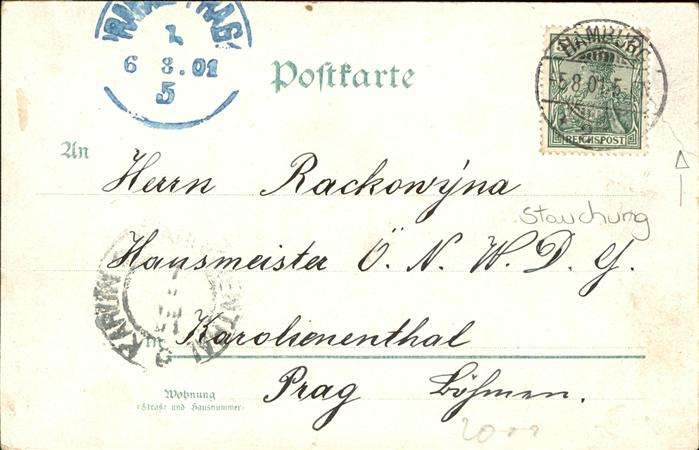 PRAHA PRAG
1
6 8.01
5
Postkarte
HAMBURG
-5.8.01.5
REICHSPOST
An
Herrn Rackowýna
Stauchung
Hausmeister Ö. N. W. D. G.
in Karolienenthal
Prag Böhmen.
Wohnung
(Straße und Hausnummer)